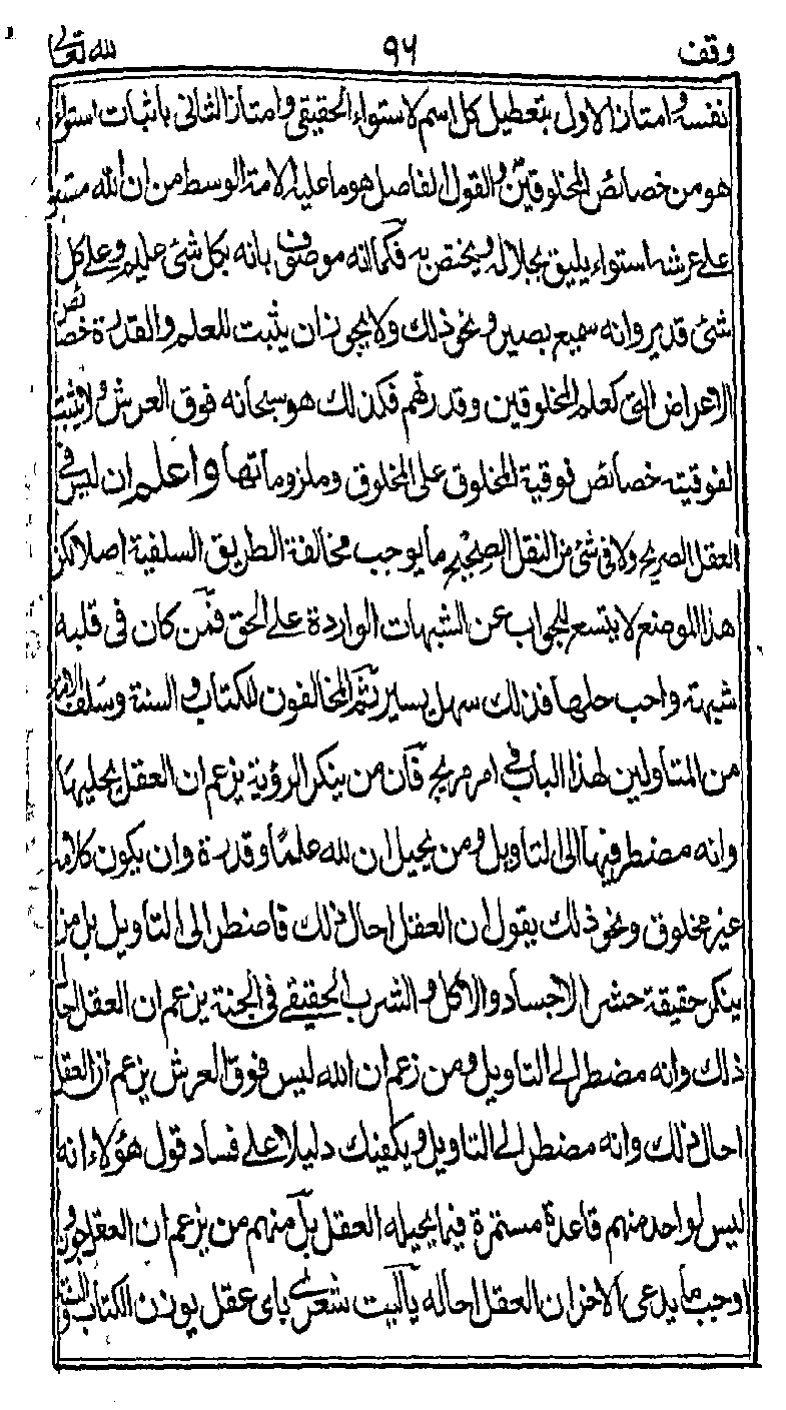 وقف ٩٦ لله تعالى
نفسه وامتاز الاول بتعطيل كل اسم للاستواء الحقيقى وامتاز الثانى باثبات استواء
هو من خصائص المخلوقين والقول الفاصل هو ما عليه الامة الوسط من ان الله مستو
على عرشه استواء يليق بجلاله ويختص به فكما انه موصوف بانه بكل شئ عليم وعلى كل
شئ قدير وانه سميع بصير ونحو ذلك ولا يجوز ان يثبت للعلم والقدرة خصائص
الاعراض التى كعلم المخلوقين وقدرتهم فكذلك هو سبحانه فوق العرش ولا يثبت
لفوقيته خصائص فوقية المخلوق على المخلوق وملزوماتها واعلم ان ليس فى
العقل الصريح ولا فى شئ من النقل الصحيح ما يوجب مخالفة الطريق السلفية اصلا لكن
هذا الموضع لا يتسع للجواب عن الشبهات الواردة على الحق فمن كان فى قلبه
شبهة واحب حلها فذلك سهل يسير ثم المخالفون للكتاب والسنة وسلف الامة
من المتاولين لهذا الباب فى امر مريج فان من ينكر الرؤية يزعم ان العقل يحيلها
وانه مضطر فيها الى التاويل ومن يحيل ان لله علما وقدرة وان يكون كلامه
غير مخلوق ونحو ذلك يقول ان العقل احال ذلك فاضطر الى التاويل بل من
ينكر حقيقة حشر الاجساد والاكل والشرب الحقيقى فى الجنة يزعم ان العقل احال
ذلك وانه مضطر الى التاويل ومن زعم ان الله ليس فوق العرش يزعم ان العقل
احال ذلك وانه مضطر الى التاويل ويكفيك دليلا على فساد قول هؤلاء انه
ليس لواحد منهم قاعدة مستمرة فيما يحيله العقل بل منهم من يزعم ان العقل جوز و
اوجب ما يدعى الاخر ان العقل احاله يا ليت شعرى باى عقل يوزن الكتاب والسنة